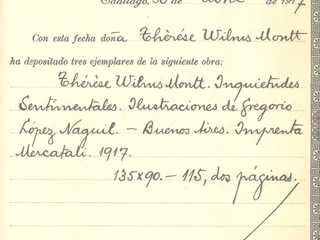 Santiago, 30 de de 1917
Con esta fecha doña Thérèse Wilms Montt
ha depositado tres ejemplares de la siguiente obra:
Thérèse Wilms Montt. Inquietudes
Sentimentales. Ilustraciones de Gregorio
López Naguil. — Buenos Aires. Imprenta
Mercatali. 1917.
135x90. — 115, dos páginas.